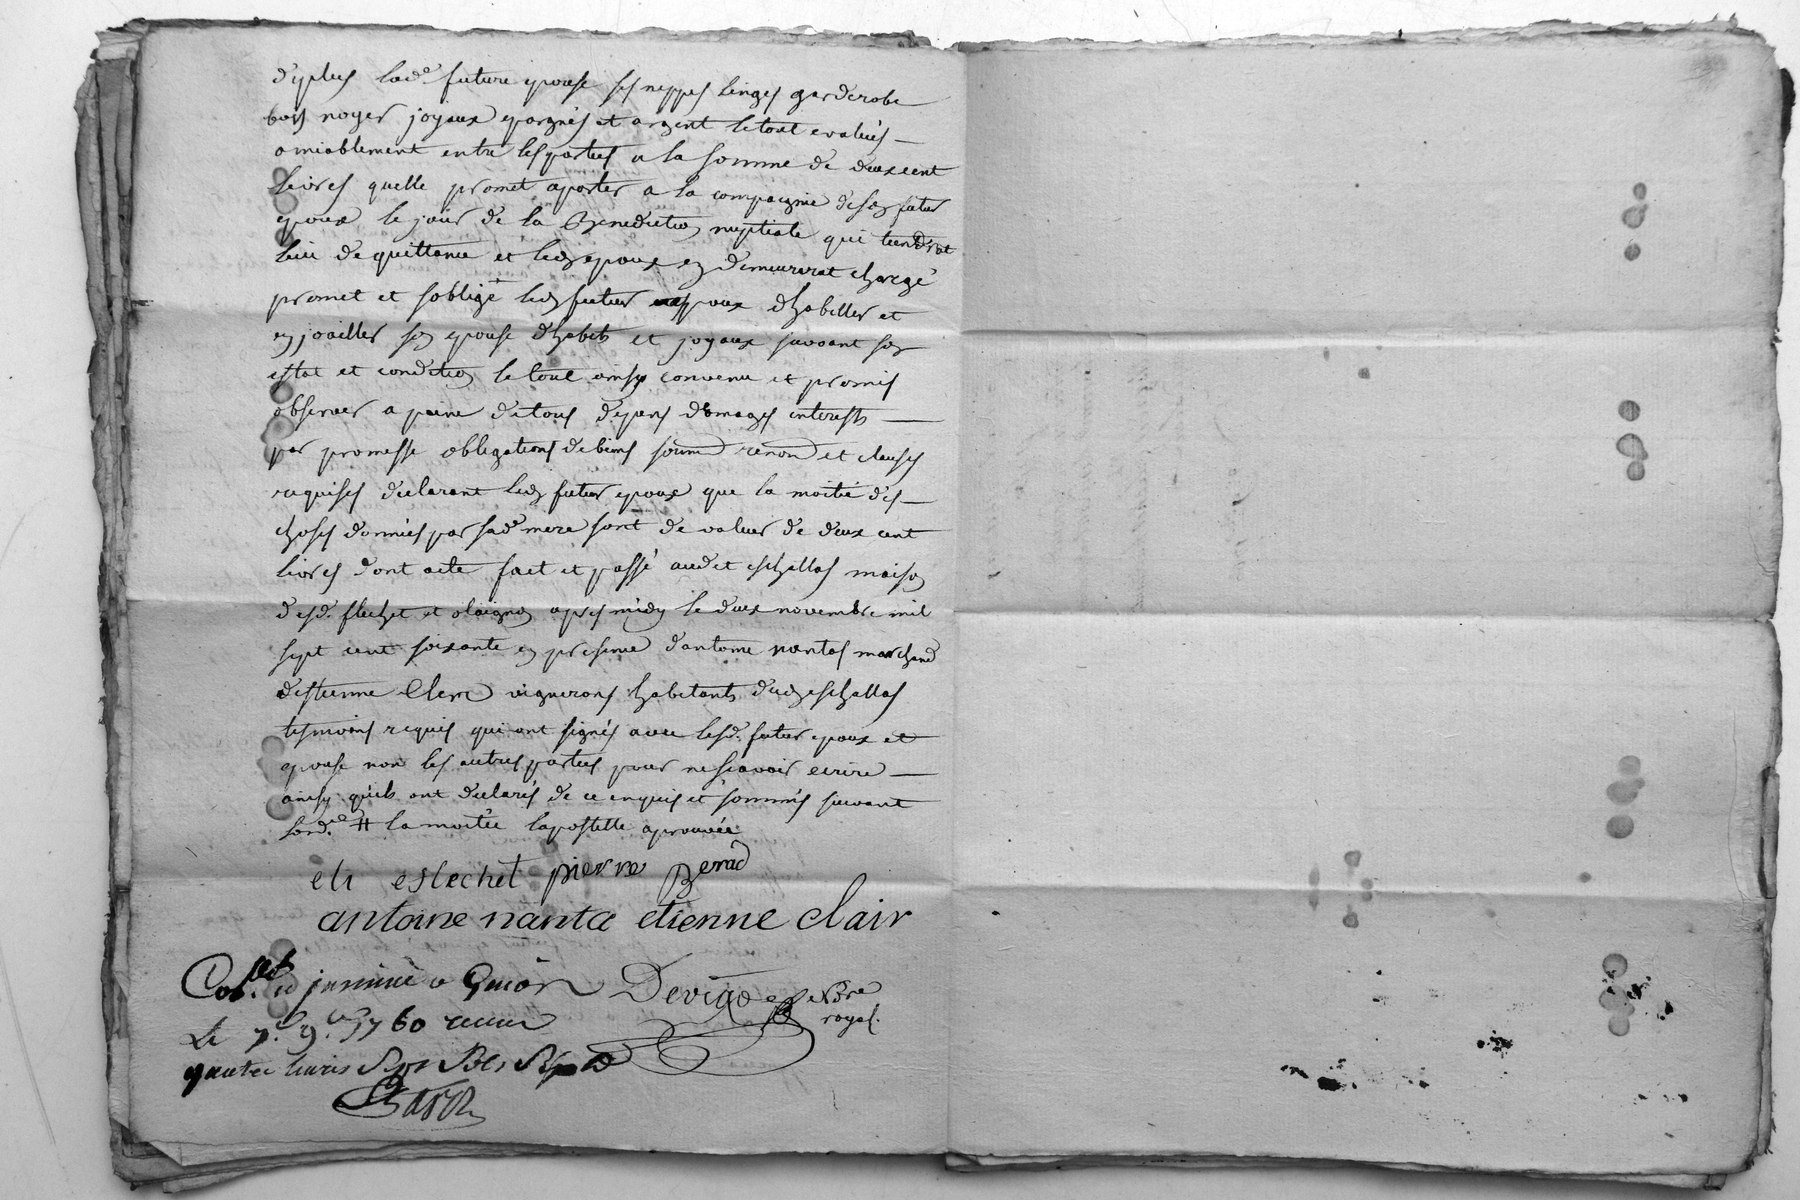 d'yplus lad.e future epouse ses nippes linges garderobe
bois noyer joyaux epargnés et argent le tout evalués
amiablement entre les parties a la somme de deux cent
livres quelle promet aporter a la compagnie de son futur
epoux le jour de la Benediction nuptiale qui tiendrat
lieu de quittance et led. epoux en demeurerat chargé
promet et soblige led. futur epoux dhabiller et
enjoailler son epouse dhabits et joyaux suivant son
estat et condition le tout ainsy convenu et promis
observer a peine de tous depens domages interests
par promesse obligations de biens soum renon et clauses
requises declarant led. futur epoux que la moitié des
choses donnés par sad.e mere sont de valeur de deux cent
livres dont acte fait et passé aud et eschallas maison
desd. flechet et oloagnon apres midy le deux novembre mil
sept cent soixante en presence dantoine nantas marchand
destienne Clerc vignerons habitants dud. eschallas
tesmoins requis qui ont signés avec lesd. futur epoux et
epouse non les autres parties pour ne scavoir ecrire
ainsy quils ont declarés de ce enquis et sommés suivant
lord.ce # la moitié lapostille aprouvée
eti eslechet pierre Berad
antoine nanta etienne clair
Con.lé et a Givors Devigne Nore
royal.
Le 7.e 9.bre 1760 receu
quatre livres